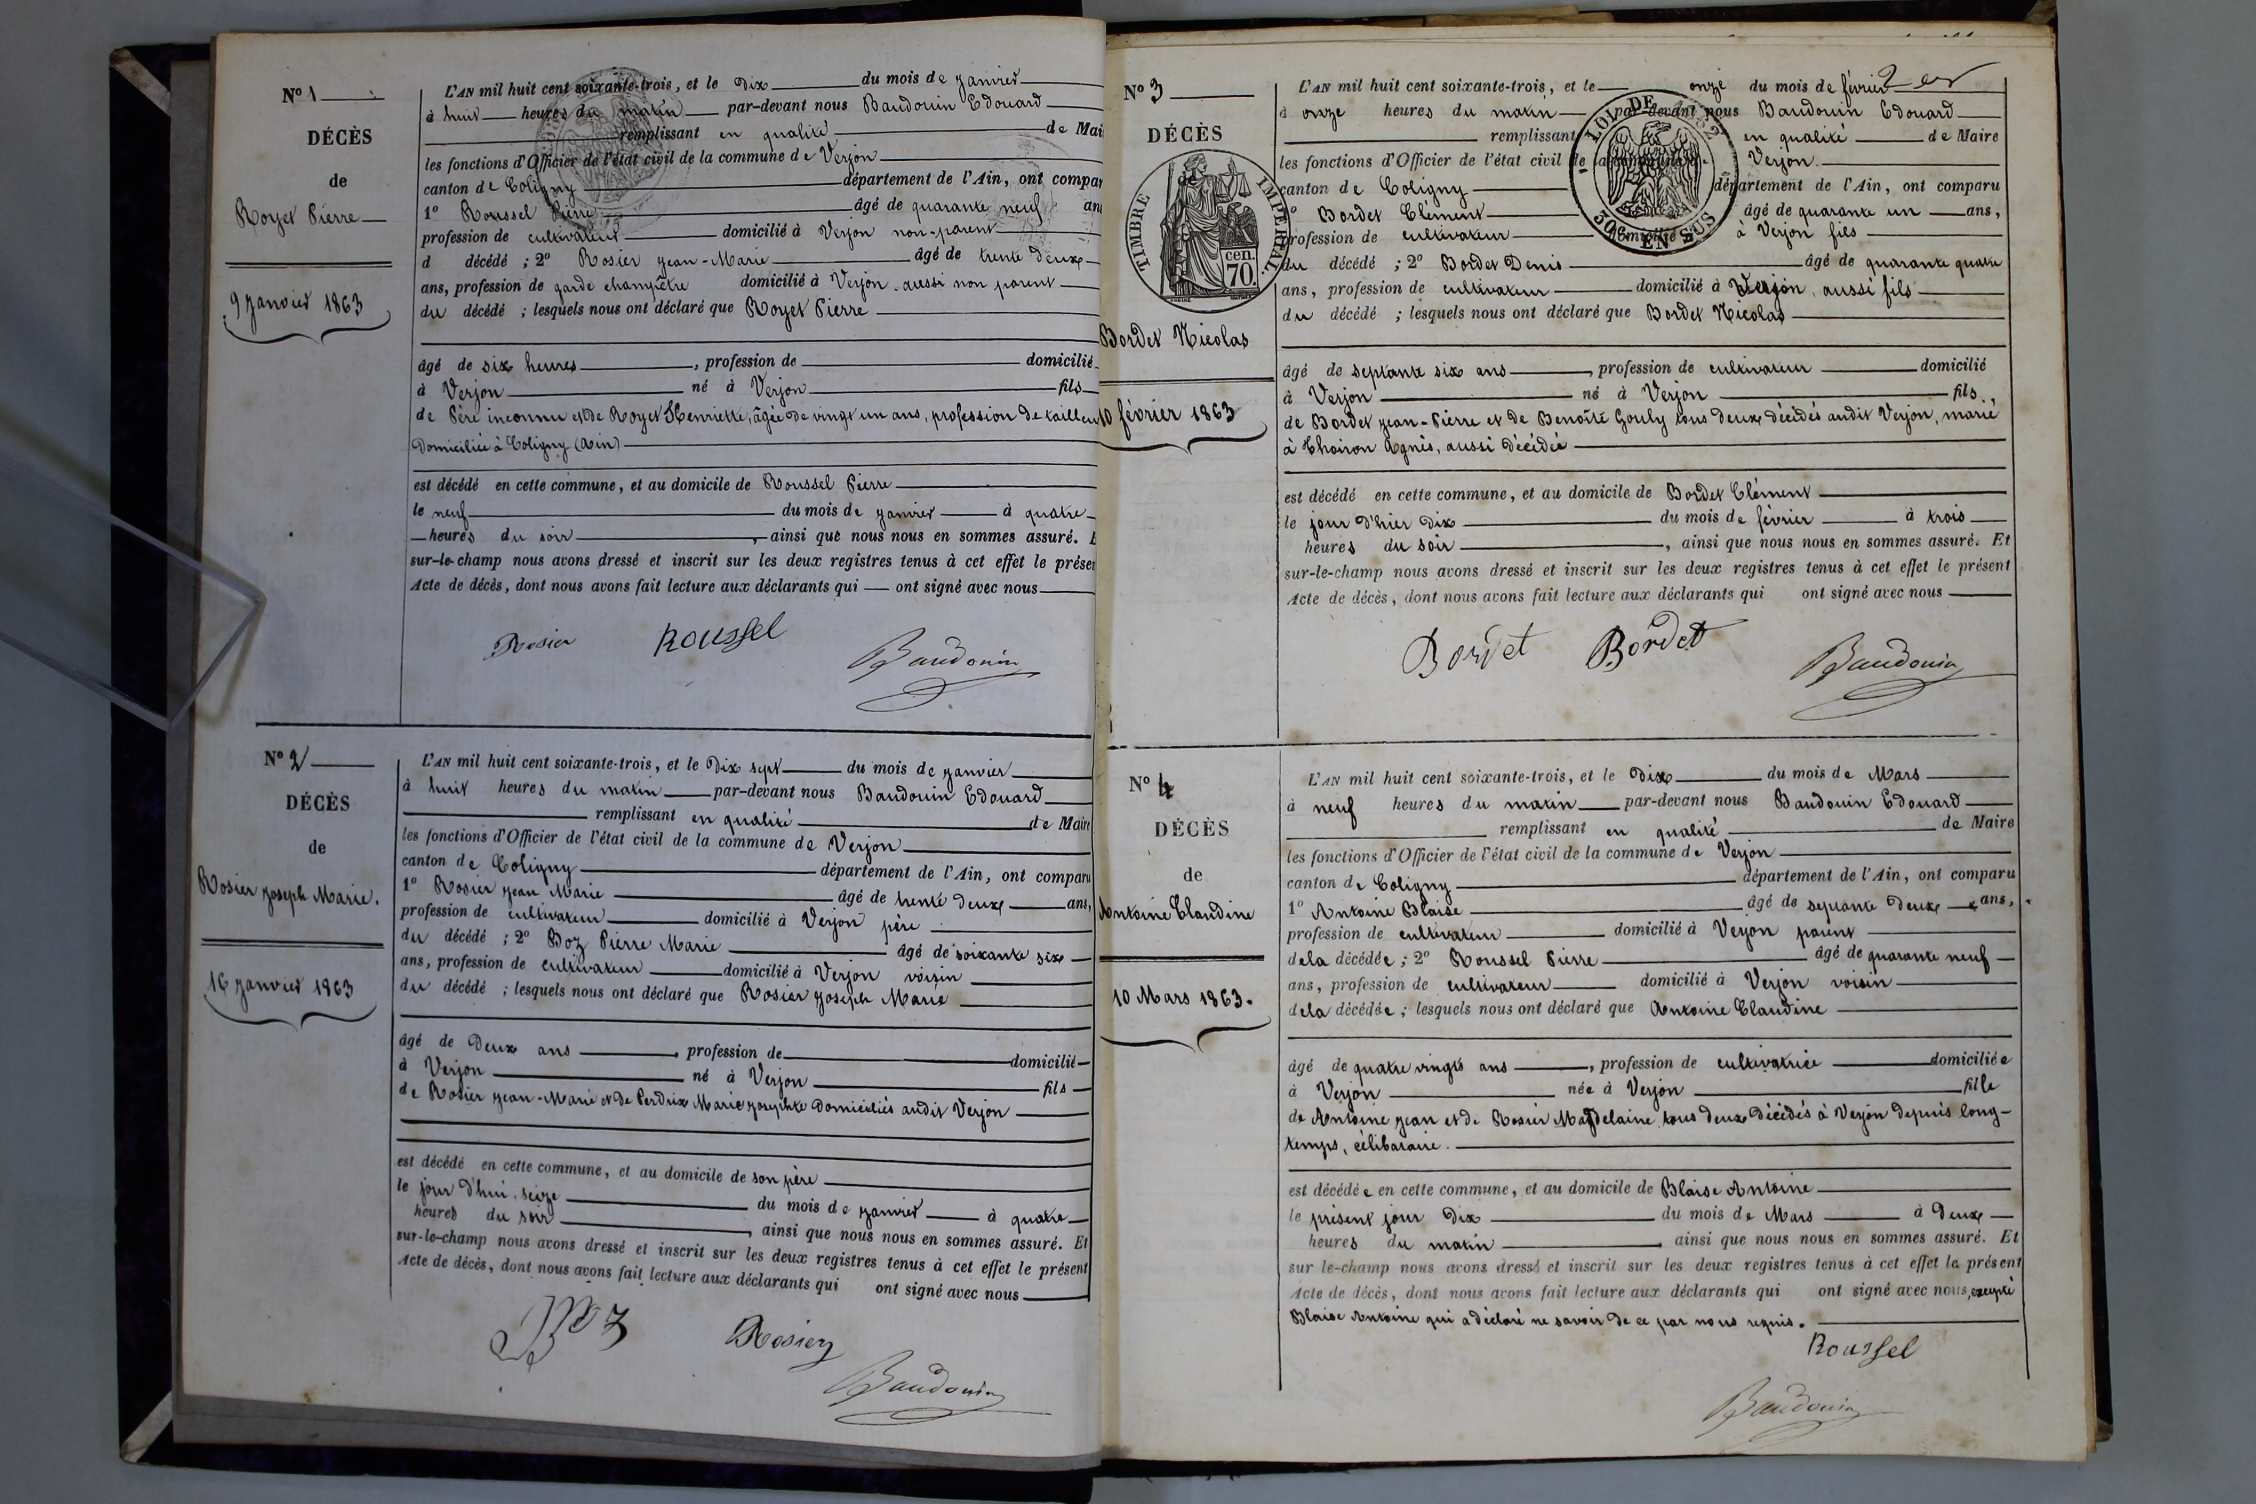 Nº 1
DÉCÈS
de
Royet Pierre
9 janvier 1863
L'AN mil huit cent soixante-trois, et le dix du mois de janvier
à huit heures du matin par-devant nous Baudouin Edouard
remplissant en qualité de Mai
les fonctions d'Officier de l'état civil de la commune de Verjon
canton de Coligny département de l'Ain, ont compar
1º Roussel Pierre âgé de quarante neuf ans
profession de cultivateur domicilié à Verjon non-parent
d décédé ; 2º Rosier Jean-Marie âgé de trente deux
ans, profession de garde champêtre domicilié à Verjon aussi non parent
du décédé ; lesquels nous ont déclaré que Royet Pierre
âgé de six heures, profession de domicilié
à Verjon né à Verjon fils
de Père inconnu et de Royet Henriette, âgée de vingt un ans, profession de tailleu
Domiciliée à Coligny (Ain)
est décédé en cette commune, et au domicile de Roussel Pierre
le neuf du mois de janvier à quatre
heures du soir, ainsi que nous nous en sommes assuré. E
sur-le-champ nous avons dressé et inscrit sur les deux registres tenus à cet effet le prése
Acte de décès, dont nous avons fait lecture aux déclarants qui ont signé avec nous
Rosier Roussel
Baudouin
Nº 2
DÉCÈS
de
Rosier Joseph Marie.
16 janvier 1863
L'AN mil huit cent soixante-trois, et le dix sept du mois de janvier
à huit heures du matin par-devant nous Baudouin Edouard
remplissant en qualité de Maire
les fonctions d'Officier de l'état civil de la commune de Verjon
canton de Coligny département de l'Ain, ont comparu
1º Rosier Jean Marie âgé de trente deux ans,
profession de cultivateur domicilié à Verjon père
du décédé ; 2º Boz Pierre Marie âgé de soixante six
ans, profession de cultivateur domicilié à Verjon voisin
du décédé ; lesquels nous ont déclaré que Rosier Joseph Marie
âgé de Deux ans, profession de domicilié
à Verjon né à Verjon fils
de Rosier Jean-Marie et de Perdrix Marie Josephte Domiciliés audit Verjon
est décédé en cette commune, et au domicile de son père
le jour d'hui, seize du mois de janvier à quatre
heures du soir, ainsi que nous nous en sommes assuré. Et
sur-le-champ nous avons dressé et inscrit sur les deux registres tenus à cet effet le présent
Acte de décès, dont nous avons fait lecture aux déclarants qui ont signé avec nous
Boz Rosier
Baudouin
Nº 3
DÉCÈS
TIMBRE IMPERIAL
cen.
70.
Bordet Nicolas
10 février 1863
LOI DE 1862
30C EN SUS
L'AN mil huit cent soixante-trois, et le onze du mois de février
à onze heures du matin par-devant nous Baudouin Edouard
remplissant en qualité de Maire
les fonctions d'Officier de l'état civil de la commune de Verjon
canton de Coligny département de l'Ain, ont comparu
1º Bordet Clément âgé de quarante un ans,
profession de cultivateur domicilié à Verjon fils
du décédé ; 2º Bordet Denis âgé de quarante quatre
ans, profession de cultivateur domicilié à Verjon, aussi fils
du décédé ; lesquels nous ont déclaré que Bordet Nicolas
âgé de septante six ans, profession de cultivateur domicilié
à Verjon né à Verjon fils,
de Bordet Jean-Pierre et de Benoîte Gouly tous deux décédés audit Verjon, marié
à Thoiron Agnès, aussi décédée
est décédé en cette commune, et au domicile de Bordet Clément
le jour d'hier dix du mois de février à trois
heures du soir, ainsi que nous nous en sommes assuré. Et
sur-le-champ nous avons dressé et inscrit sur les deux registres tenus à cet effet le présent
Acte de décès, dont nous avons fait lecture aux déclarants qui ont signé avec nous
Bordet Bordet
Baudouin
Nº 4
DÉCÈS
de
Antoine Claudine
10 Mars 1863.
L'AN mil huit cent soixante-trois, et le dix du mois de Mars
à neuf heures du matin par-devant nous Baudouin Edouard
remplissant en qualité de Maire
les fonctions d'Officier de l'état civil de la commune de Verjon
canton de Coligny département de l'Ain, ont comparu
1º Antoine Blaise âgé de septante deux ans,
profession de cultivateur domicilié à Verjon parent
dela décédée ; 2º Roussel Pierre âgé de quarante neuf
ans, profession de cultivateur domicilié à Verjon voisin
dela décédée ; lesquels nous ont déclaré que Antoine Claudine
âgé de quatre vingts ans, profession de cultivatrice domiciliée
à Verjon née à Verjon fille
de Antoine Jean et de Rosier Magdelaine tous deux décédés à Verjon depuis long-
temps, célibataire.
est décédée en cette commune, et au domicile de Blaise Antoine
le présent jour dix du mois de Mars à Deux
heures du matin, ainsi que nous nous en sommes assuré. Et
sur le-champ nous avons dressé et inscrit sur les deux registres tenus à cet effet le présent
Acte de décès, dont nous avons fait lecture aux déclarants qui ont signé avec nous, excepté
Blaise Antoine qui a déclaré ne savoir de ce par nous requis.
Roussel
Baudouin